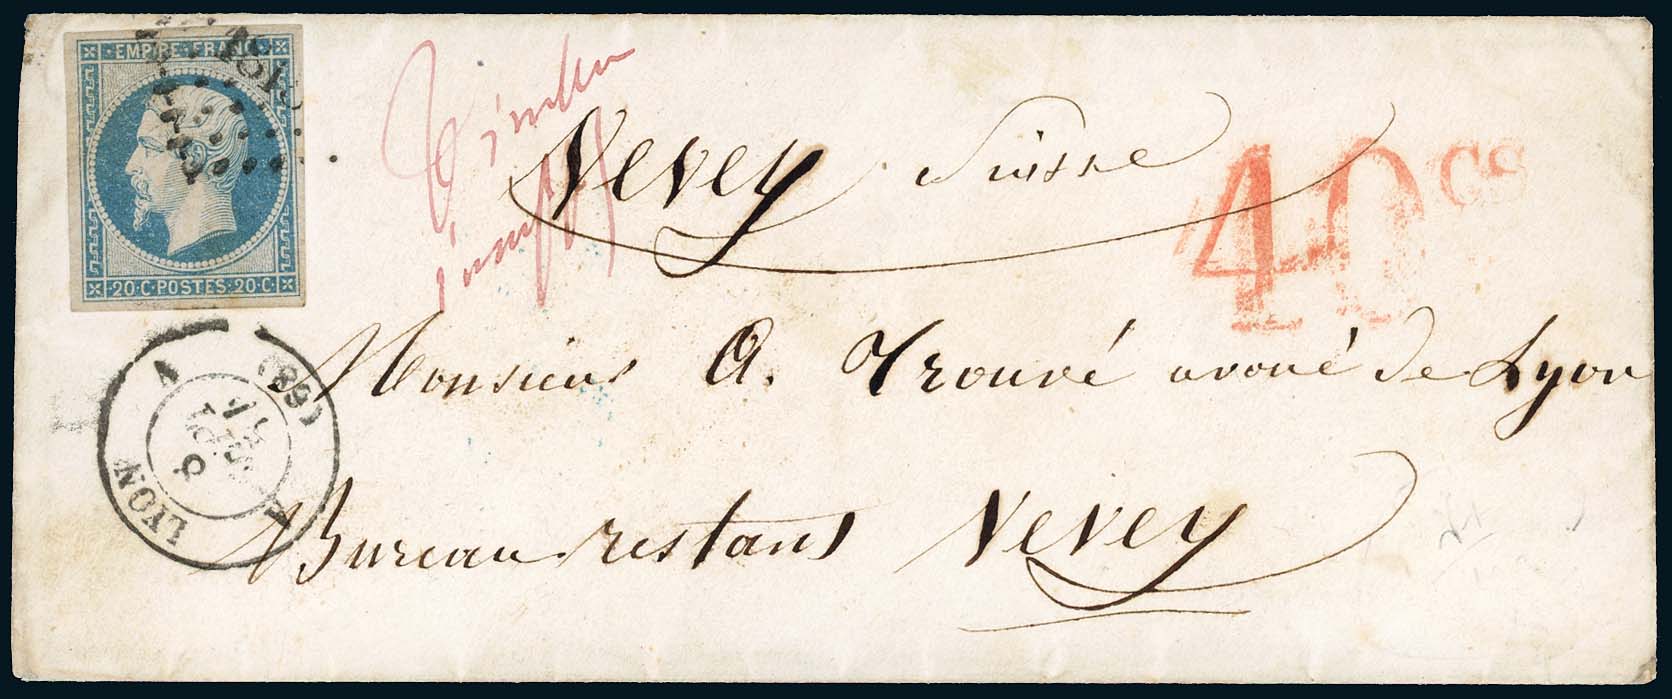 EMPIRE · FRANC ·
1818
20 · C · POSTES · 20 · C ·
Timbre
insuff
Vevey Suisse
40 cs
Monsieur A. Trouvé avoué de Lyon
Bureau restant Vevey
A (68)
8
LYON